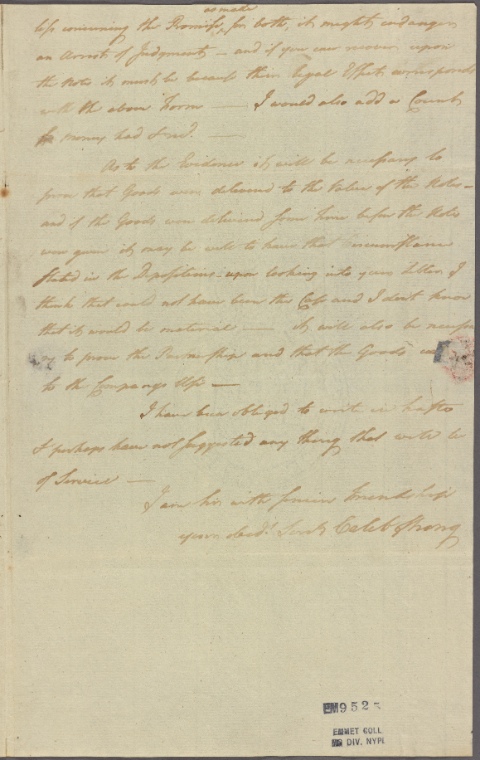 as made
less concerning the Promises for both, it might endanger
an Arrest of Judgment — and if you can recover upon
the Notes it must be because their legal Effect corresponds
with the above Form —— I would also add a Count
for money had & recd. ——
As to the Evidence it will be necessary to
prove that Goods were delivered to the Value of the Notes —
and if the Goods were delivered some time before the Notes
were given it may be well to have that Circumstance
Stated in the Depositions — upon looking into your Letter I
think that could not have been the Case and I don't know
that it would be material —— it will also be necessa
ry to prove the Partnership and that the Goods
to the Companys Use —
I have been obliged to write in haste
& perhaps have not suggested any thing that will be
of Service —
I am Sir with sincere Friendship
your obedt. Servt. Caleb Strong
EM9527
EMMET COLL
MS DIV. NYPL